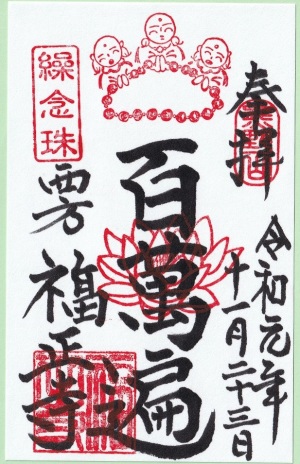 奉拝
令和元年
十一月二十三日
百萬遍
繰念珠
西方
福正寺